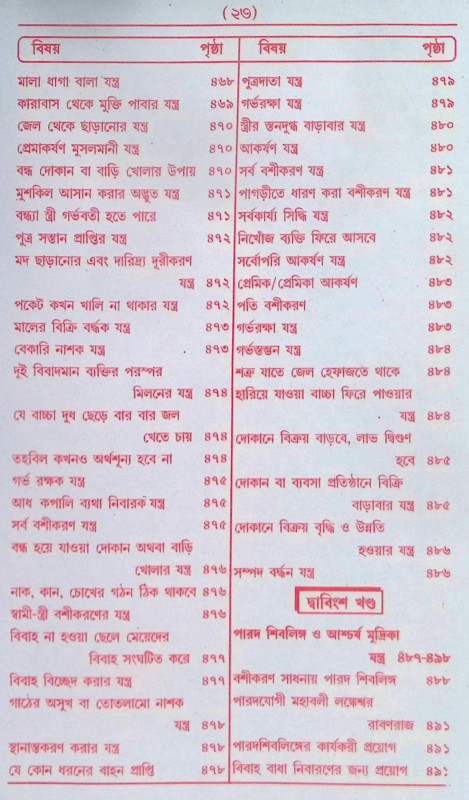 (২৭)
বিষয় পৃষ্ঠা
মালা ধাগা বালা যন্ত্র ৪৬৮
কারাবাস থেকে মুক্তি পাবার যন্ত্র ৪৬৯
জেল থেকে ছাড়ানোর যন্ত্র ৪৭০
প্রেমাকর্ষণ মুসলমানী যন্ত্র ৪৭০
বন্ধ দোকান বা বাড়ি খোলার উপায় ৪৭০
মুশকিল আসান করার অদ্ভুত যন্ত্র ৪৭১
বন্ধ্যা স্ত্রী গর্ভবতী হতে পারে ৪৭১
পুত্র সন্তান প্রাপ্তির যন্ত্র ৪৭২
মদ ছাড়ানোর এবং দারিদ্র্য দূরীকরণ
যন্ত্র ৪৭২
পকেট কখন খালি না থাকার যন্ত্র ৪৭২
মালের বিক্রি বর্দ্ধক যন্ত্র ৪৭৩
বেকারি নাশক যন্ত্র ৪৭৩
দুই বিবাদমান ব্যক্তির পরস্পর
মিলনের যন্ত্র ৪৭৪
যে বাচ্চা দুধ ছেড়ে বার বার জল
খেতে চায় ৪৭৪
তহবিল কখনও অর্থশূন্য হবে না ৪৭৪
গর্ভ রক্ষক যন্ত্র ৪৭৫
আধ কপালি ব্যথা নিবারক যন্ত্র ৪৭৫
সর্ব বশীকরণ যন্ত্র ৪৭৫
বন্ধ হয়ে যাওয়া দোকান অথবা বাড়ি
খোলার যন্ত্র ৪৭৬
নাক, কান, চোখের গঠন ঠিক থাকবে ৪৭৬
স্বামী-স্ত্রী বশীকরণের যন্ত্র ৪৭৬
বিবাহ না হওয়া ছেলে মেয়েদের
বিবাহ সংঘটিত করে ৪৭৭
বিবাহ বিচ্ছেদ করার যন্ত্র ৪৭৭
গাঠের অসুখ বা তোতলামো নাশক
যন্ত্র ৪৭৮
স্থানান্তকরণ করার যন্ত্র ৪৭৮
যে কোন ধরনের বাহন প্রাপ্তি ৪৭৮
বিষয় পৃষ্ঠা
পুত্রদাতা যন্ত্র ৪৭৯
গর্ভরক্ষা যন্ত্র ৪৭৯
স্ত্রীর স্তনদুগ্ধ বাড়াবার যন্ত্র ৪৮০
আকর্ষণ যন্ত্র ৪৮০
সর্ব বশীকরণ যন্ত্র ৪৮১
পাগড়ীতে ধারণ করা বশীকরণ যন্ত্র ৪৮১
সর্বকার্য্য সিদ্ধি যন্ত্র ৪৮২
নিখোঁজ ব্যক্তি ফিরে আসবে ৪৮২
সর্বোপরি আকর্ষণ যন্ত্র ৪৮২
প্রেমিক/প্রেমিকা আকর্ষণ ৪৮৩
পতি বশীকরণ ৪৮৩
গর্ভরক্ষা যন্ত্র ৪৮৩
গর্ভস্তম্ভন যন্ত্র ৪৮৪
শত্রু যাতে জেল হেফাজতে থাকে ৪৮৪
হারিয়ে যাওয়া বাচ্চা ফিরে পাওয়ার
যন্ত্র ৪৮৪
দোকানে বিক্রয় বাড়বে, লাভ দ্বিগুণ
হবে ৪৮৫
দোকান বা ব্যবসা প্রতিষ্ঠানে বিক্রি
বাড়াবার যন্ত্র ৪৮৫
দোকানে বিক্রয় বৃদ্ধি ও উন্নতি
হওয়ার যন্ত্র ৪৮৬
সম্পদ বর্দ্ধন যন্ত্র ৪৮৬
দ্বাবিংশ খণ্ড
পারদ শিবলিঙ্গ ও আশ্চর্য মুদ্রিকা
যন্ত্র ৪৮৭-৪৯৮
বশীকরণ সাধনায় পারদ শিবলিঙ্গ ৪৮৮
পারদযোগী মহাবলী লঙ্কেশ্বর
রাবণরাজ ৪৯১
পারদশিবলিঙ্গের কার্যকরী প্রয়োগ ৪৯১
বিবাহ বাধা নিবারণের জন্য প্রয়োগ ৪৯১